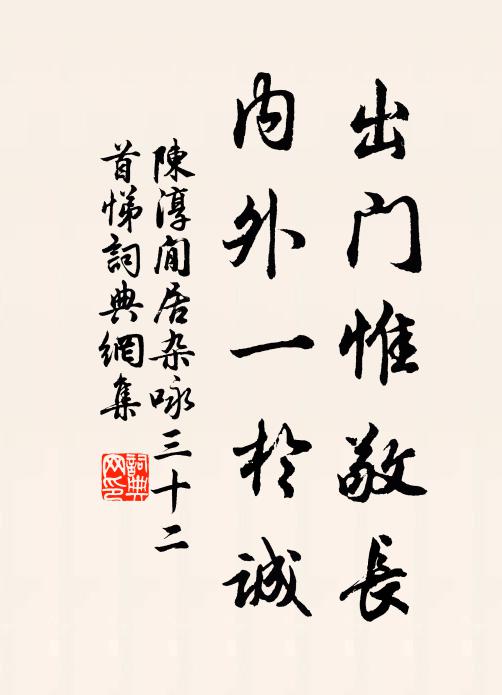 出门惟敬長
内外一於誠
陳淳閒居杂咏三十二
首悌詞典網集
詞典网印